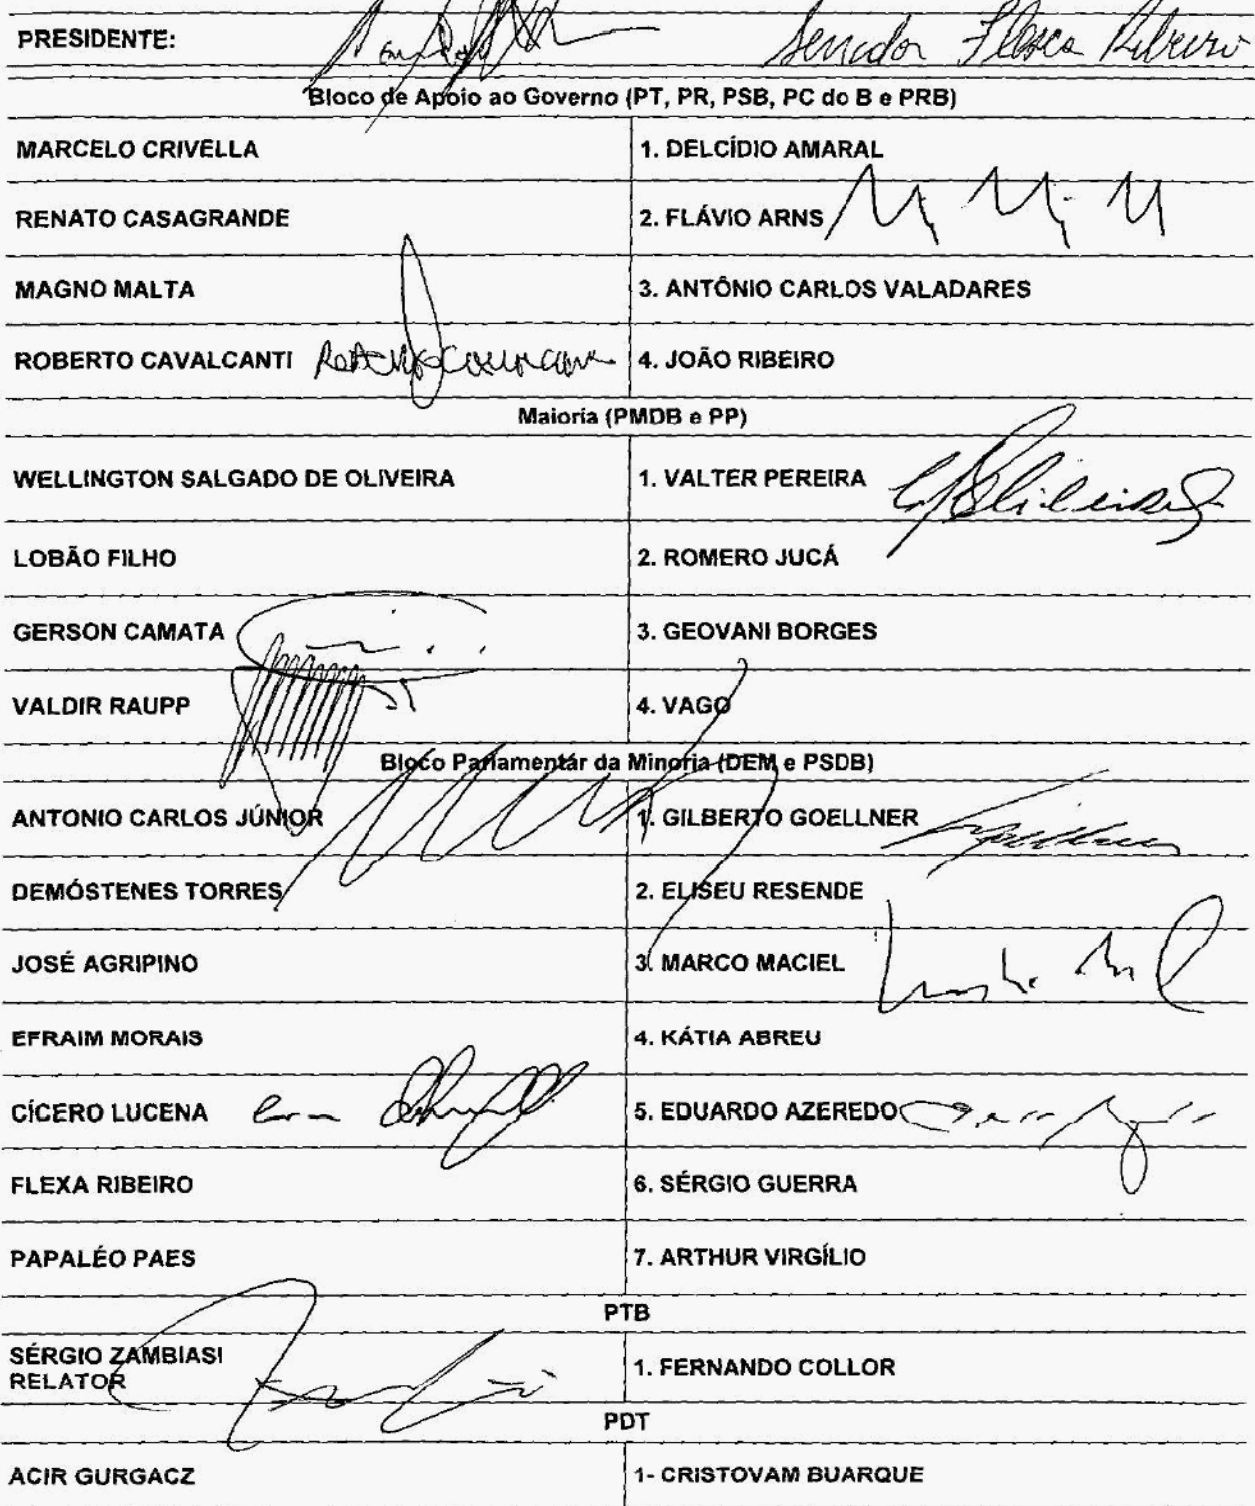 PRESIDENTE: Senador Flexa Ribeiro
Bloco de Apoio ao Governo (PT, PR, PSB, PC do B e PRB)
MARCELO CRIVELLA 1. DELCÍDIO AMARAL
RENATO CASAGRANDE 2. FLÁVIO ARNS
MAGNO MALTA 3. ANTÔNIO CARLOS VALADARES
ROBERTO CAVALCANTI 4. JOÃO RIBEIRO
Maioria (PMDB e PP)
WELLINGTON SALGADO DE OLIVEIRA 1. VALTER PEREIRA
LOBÃO FILHO 2. ROMERO JUCÁ
GERSON CAMATA 3. GEOVANI BORGES
VALDIR RAUPP 4. VAGO
Bloco Parlamentar da Minoria (DEM e PSDB)
ANTONIO CARLOS JÚNIOR 1. GILBERTO GOELLNER
DEMÓSTENES TORRES 2. ELISEU RESENDE
JOSÉ AGRIPINO 3. MARCO MACIEL
EFRAIM MORAIS 4. KÁTIA ABREU
CÍCERO LUCENA 5. EDUARDO AZEREDO
FLEXA RIBEIRO 6. SÉRGIO GUERRA
PAPALÉO PAES 7. ARTHUR VIRGÍLIO
PTB
SÉRGIO ZAMBIASI
RELATOR 1. FERNANDO COLLOR
PDT
ACIR GURGACZ 1- CRISTOVAM BUARQUE